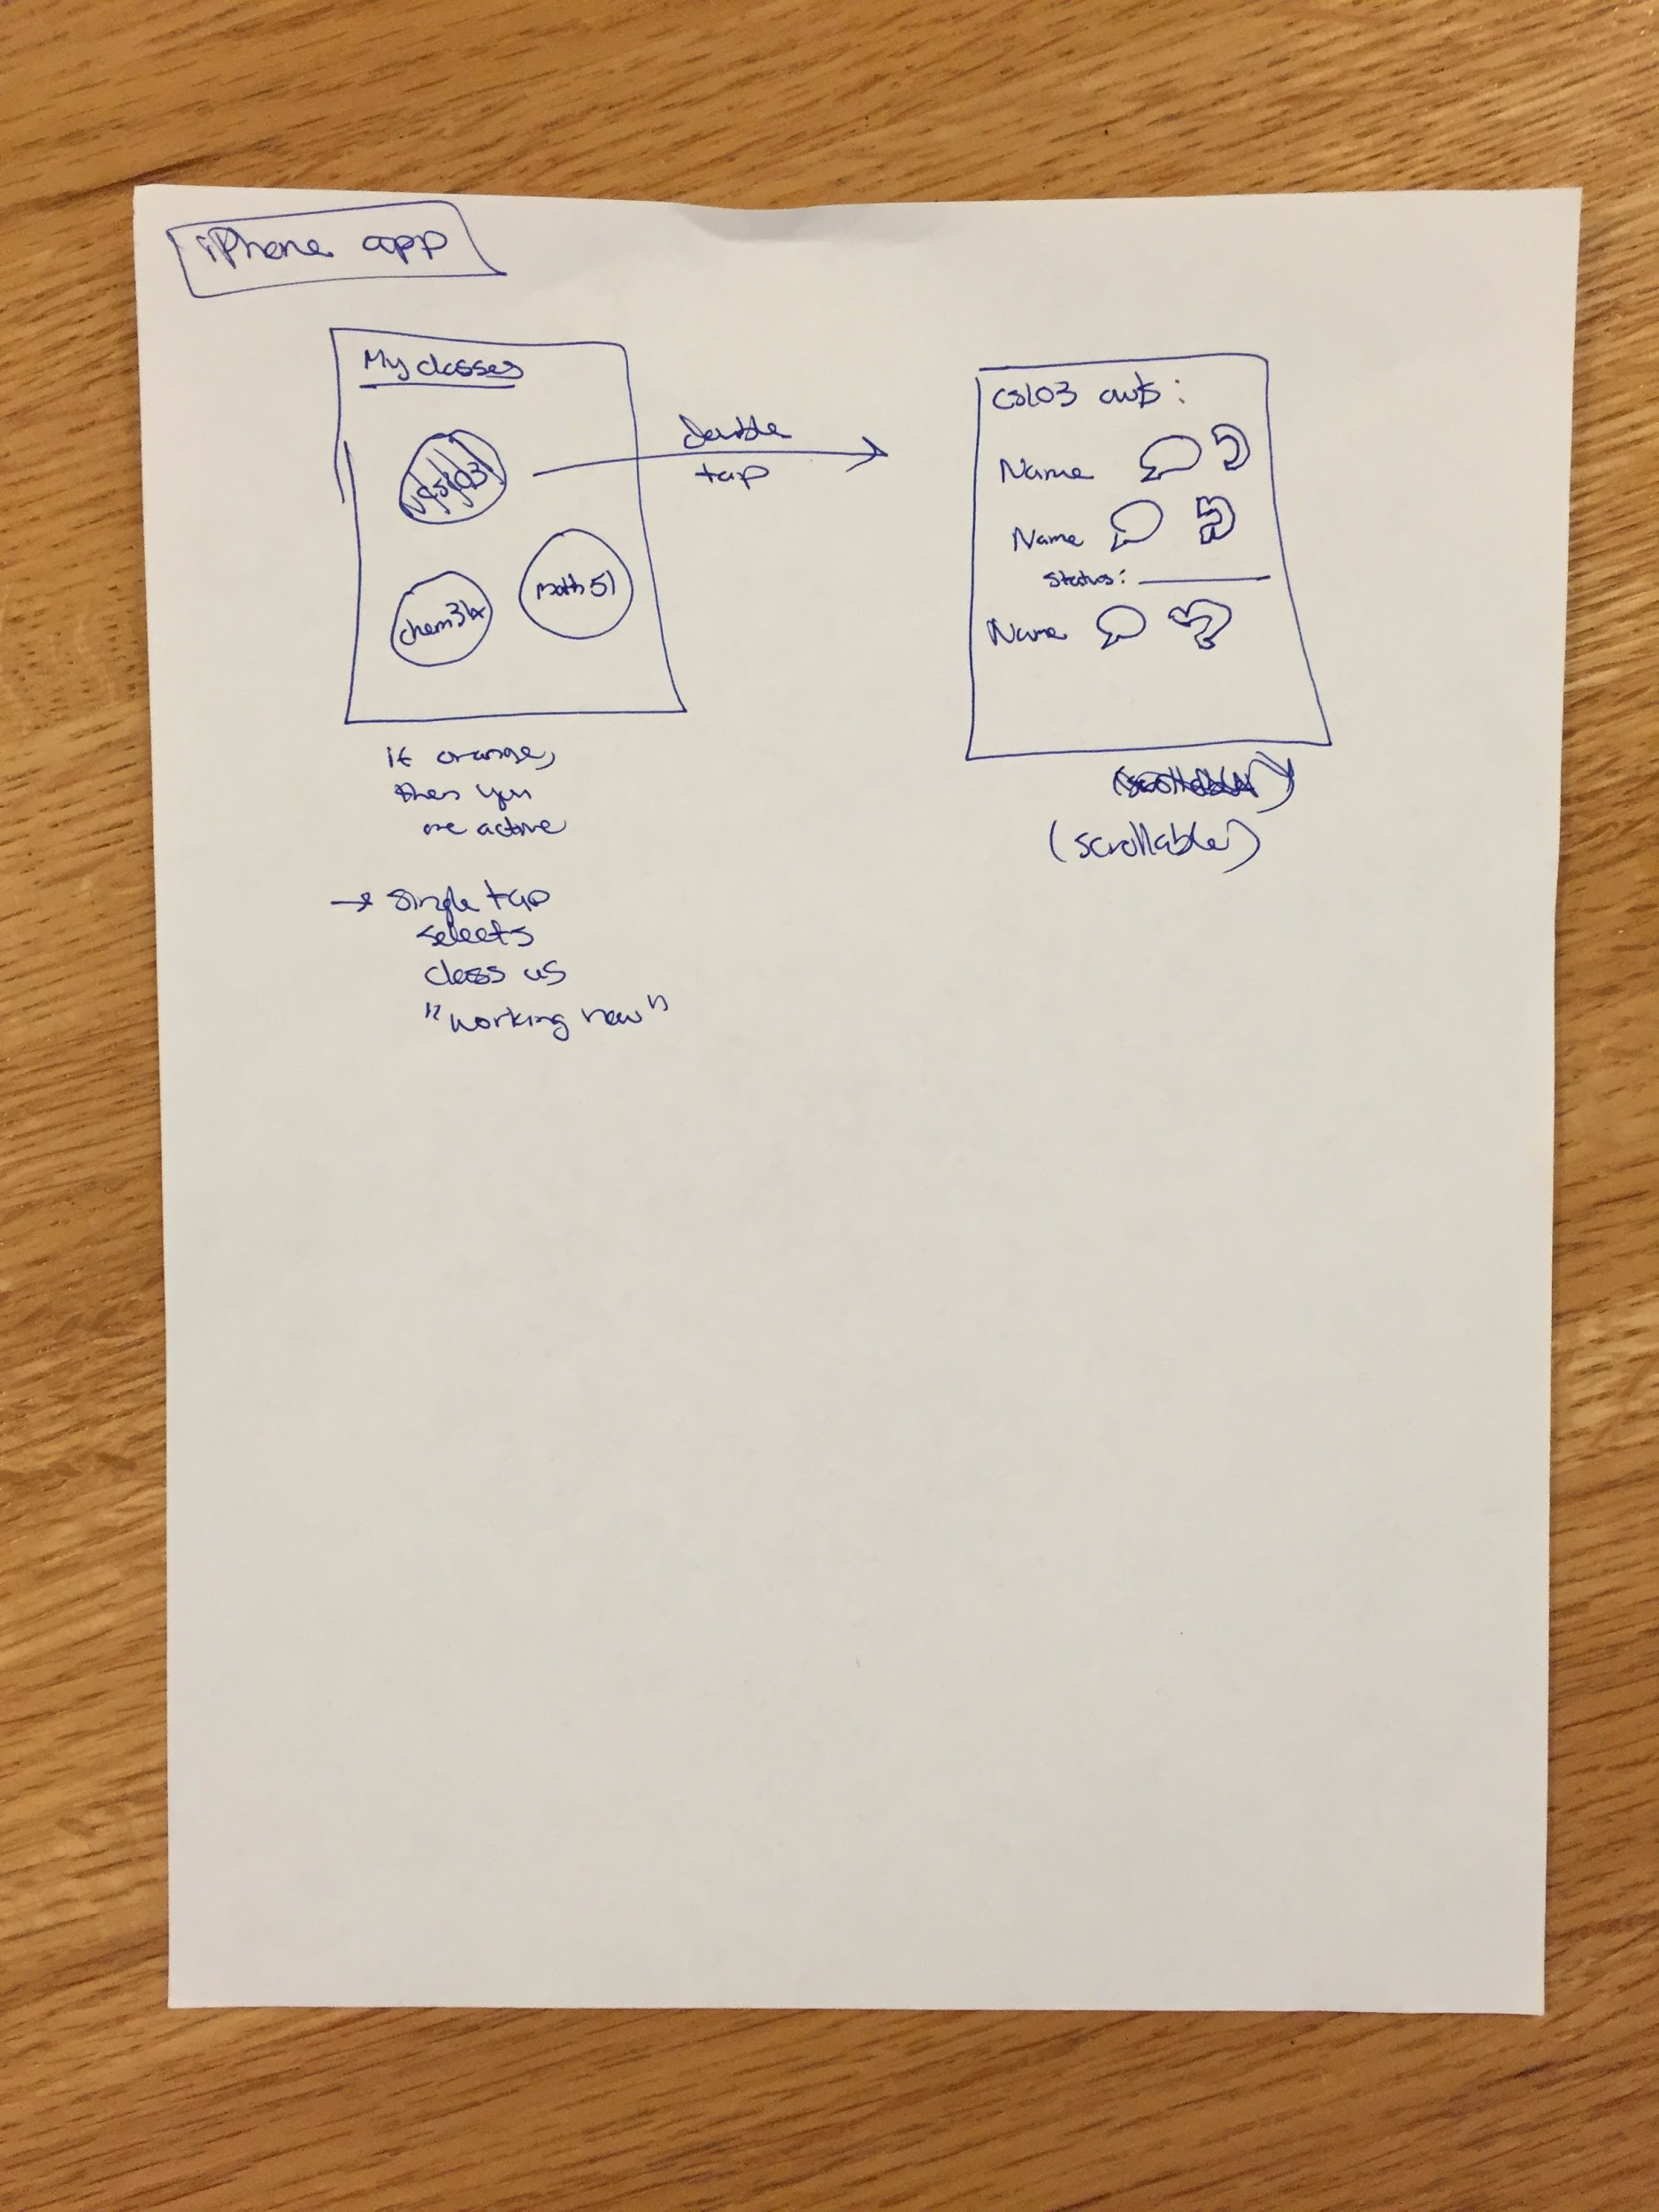 iPhone app
My classes
cs103
math 51
chem31x
double
tap
if orange,
then you
are active
→ single tap
selects
class as
"working now"
CS103
Name
Name
status:
Name
(scrollable)